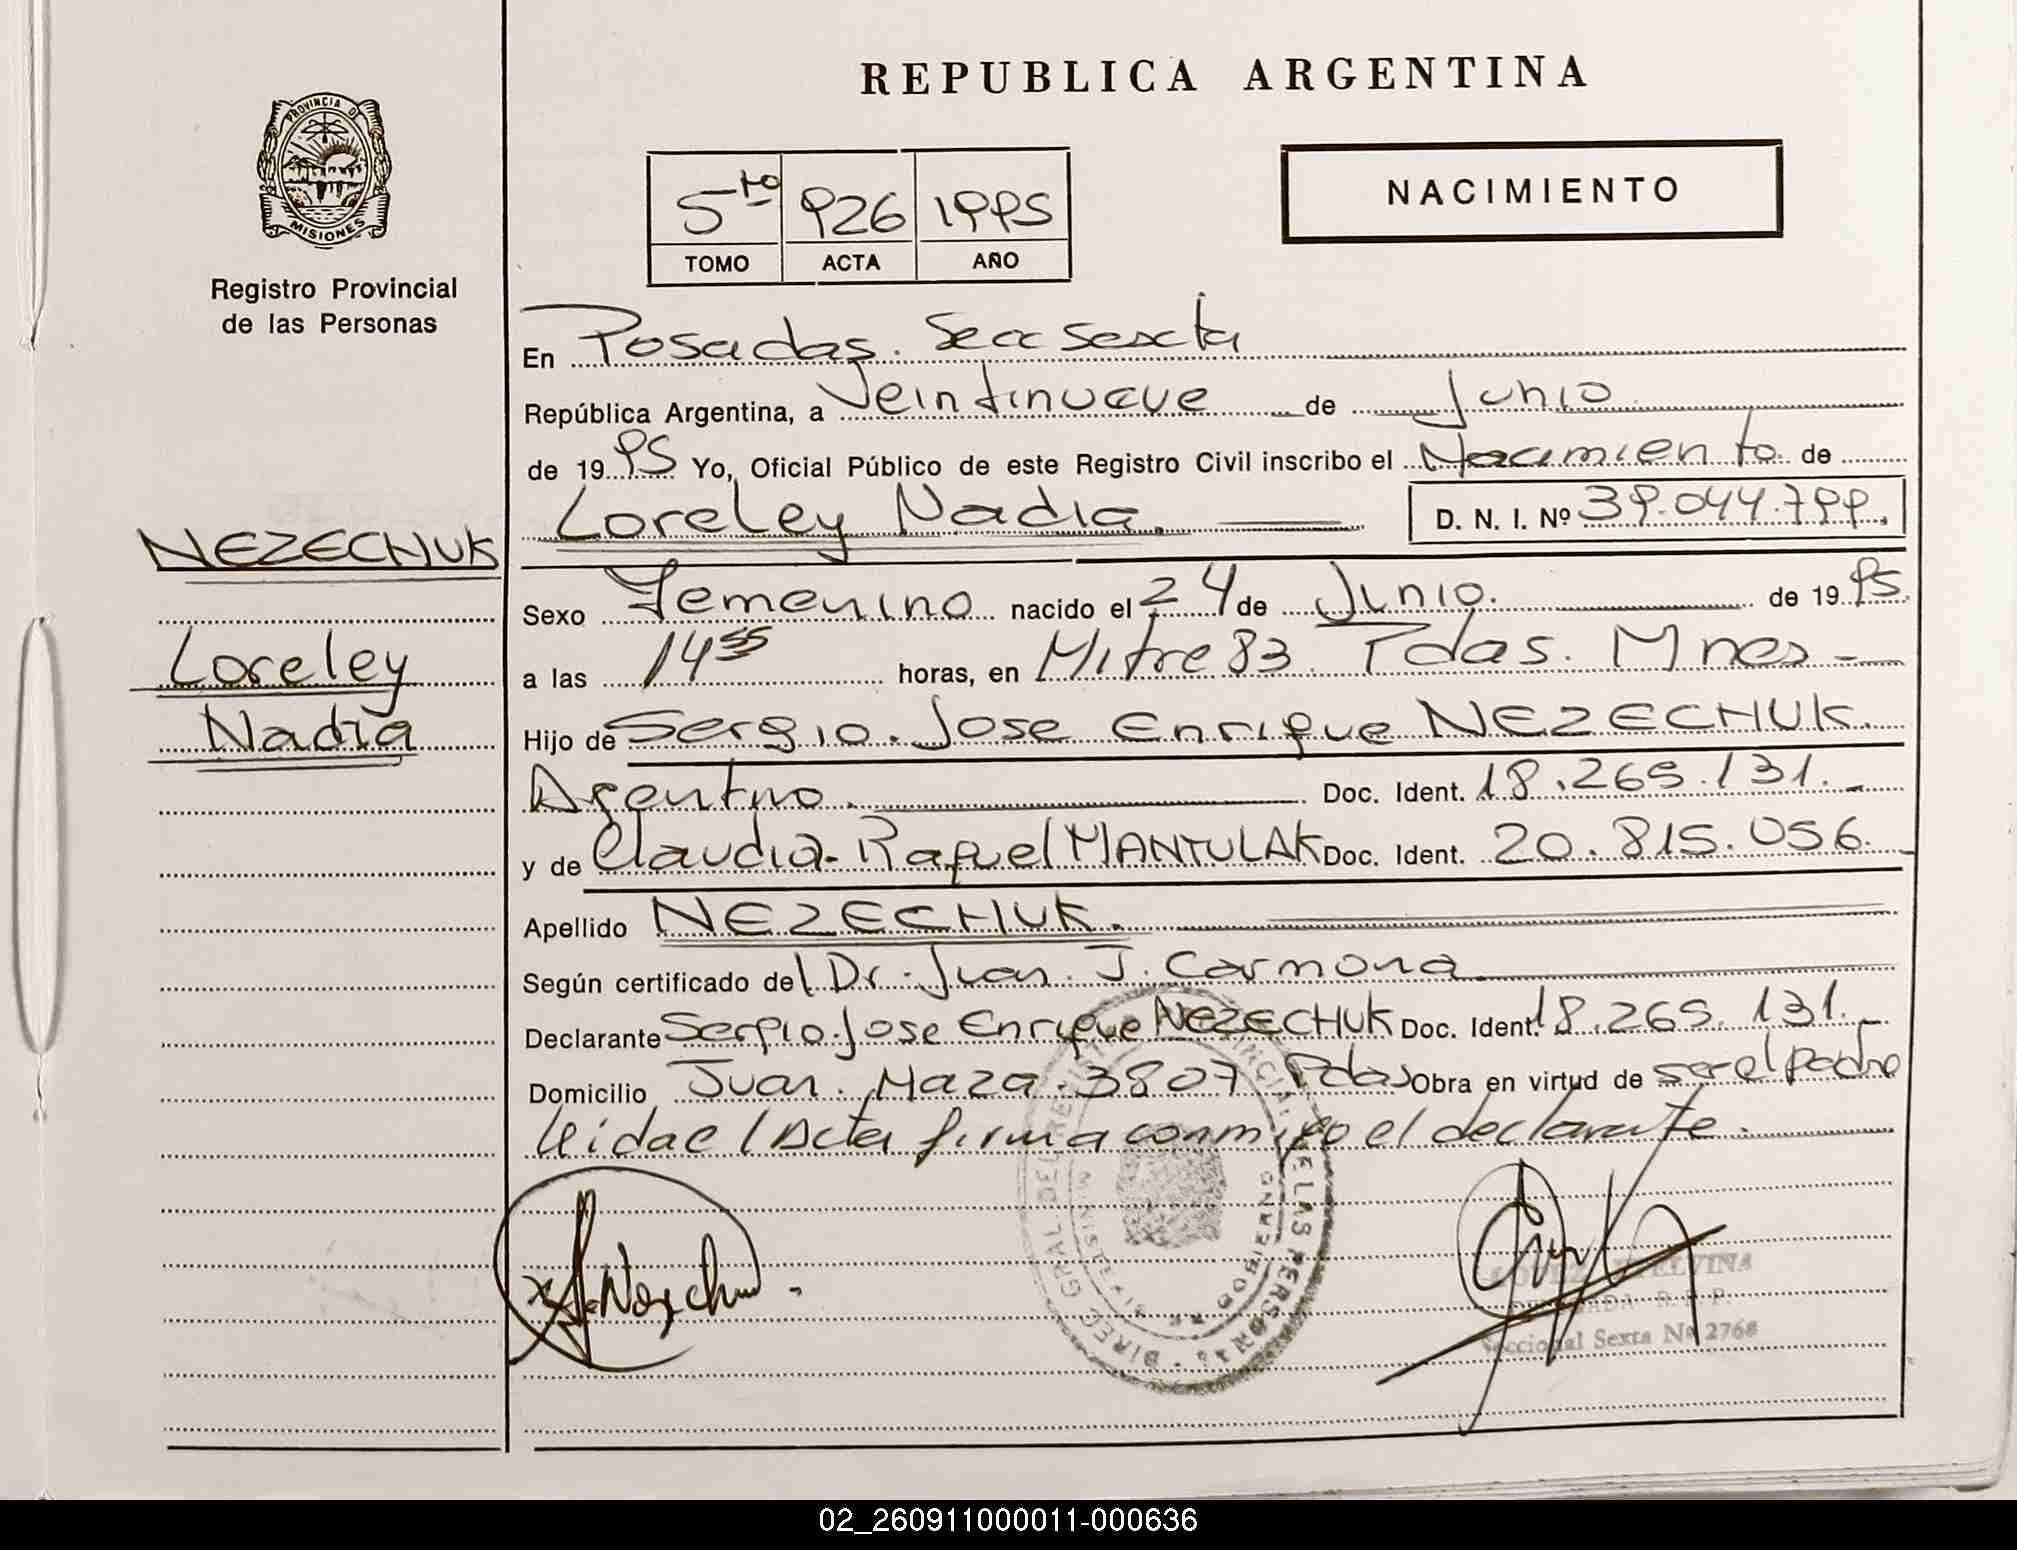 REPUBLICA ARGENTINA
PROVINCIA DE
MISIONES
Registro Provincial
de las Personas
5to 926 1995
TOMO ACTA AÑO
NACIMIENTO
En Posadas. Secc Sexta
República Argentina, a Veintinueve de Junio
de 1995 Yo, Oficial Público de este Registro Civil inscribo el Nacimiento de
Loreley Nadia. D. N. I. Nº 39.044.799.
NEZECHUK
Loreley
Nadia
Sexo Femenino nacido el 24 de Junio. de 1995
a las 14 55 horas, en Mitre 83. Pdas. Mnes-
Hijo de Sergio. Jose Enrique NEZECHUK.
Argentino. Doc. Ident. 18.265.131.-
y de Claudia Raquel MANTULAK Doc. Ident. 20.815.056.
Apellido NEZECHUK.
Según certificado del Dr. Juan. J. Carmona
Declarante Sergio. Jose Enrique NEZECHUK Doc. Ident. 18.265.131.
Domicilio Juan. Maza. 3807 Pdas Obra en virtud de ser el padre
Leida el Acta firma conmigo el declarante.
Nezechu
DIREC GRAL. DEL REGISTRO PROVINCIAL DE LAS PERSONAS
MISIONES
ELVINA
R. P. P.
Seccional Sexta Nº 2768
02_260911000011-000636